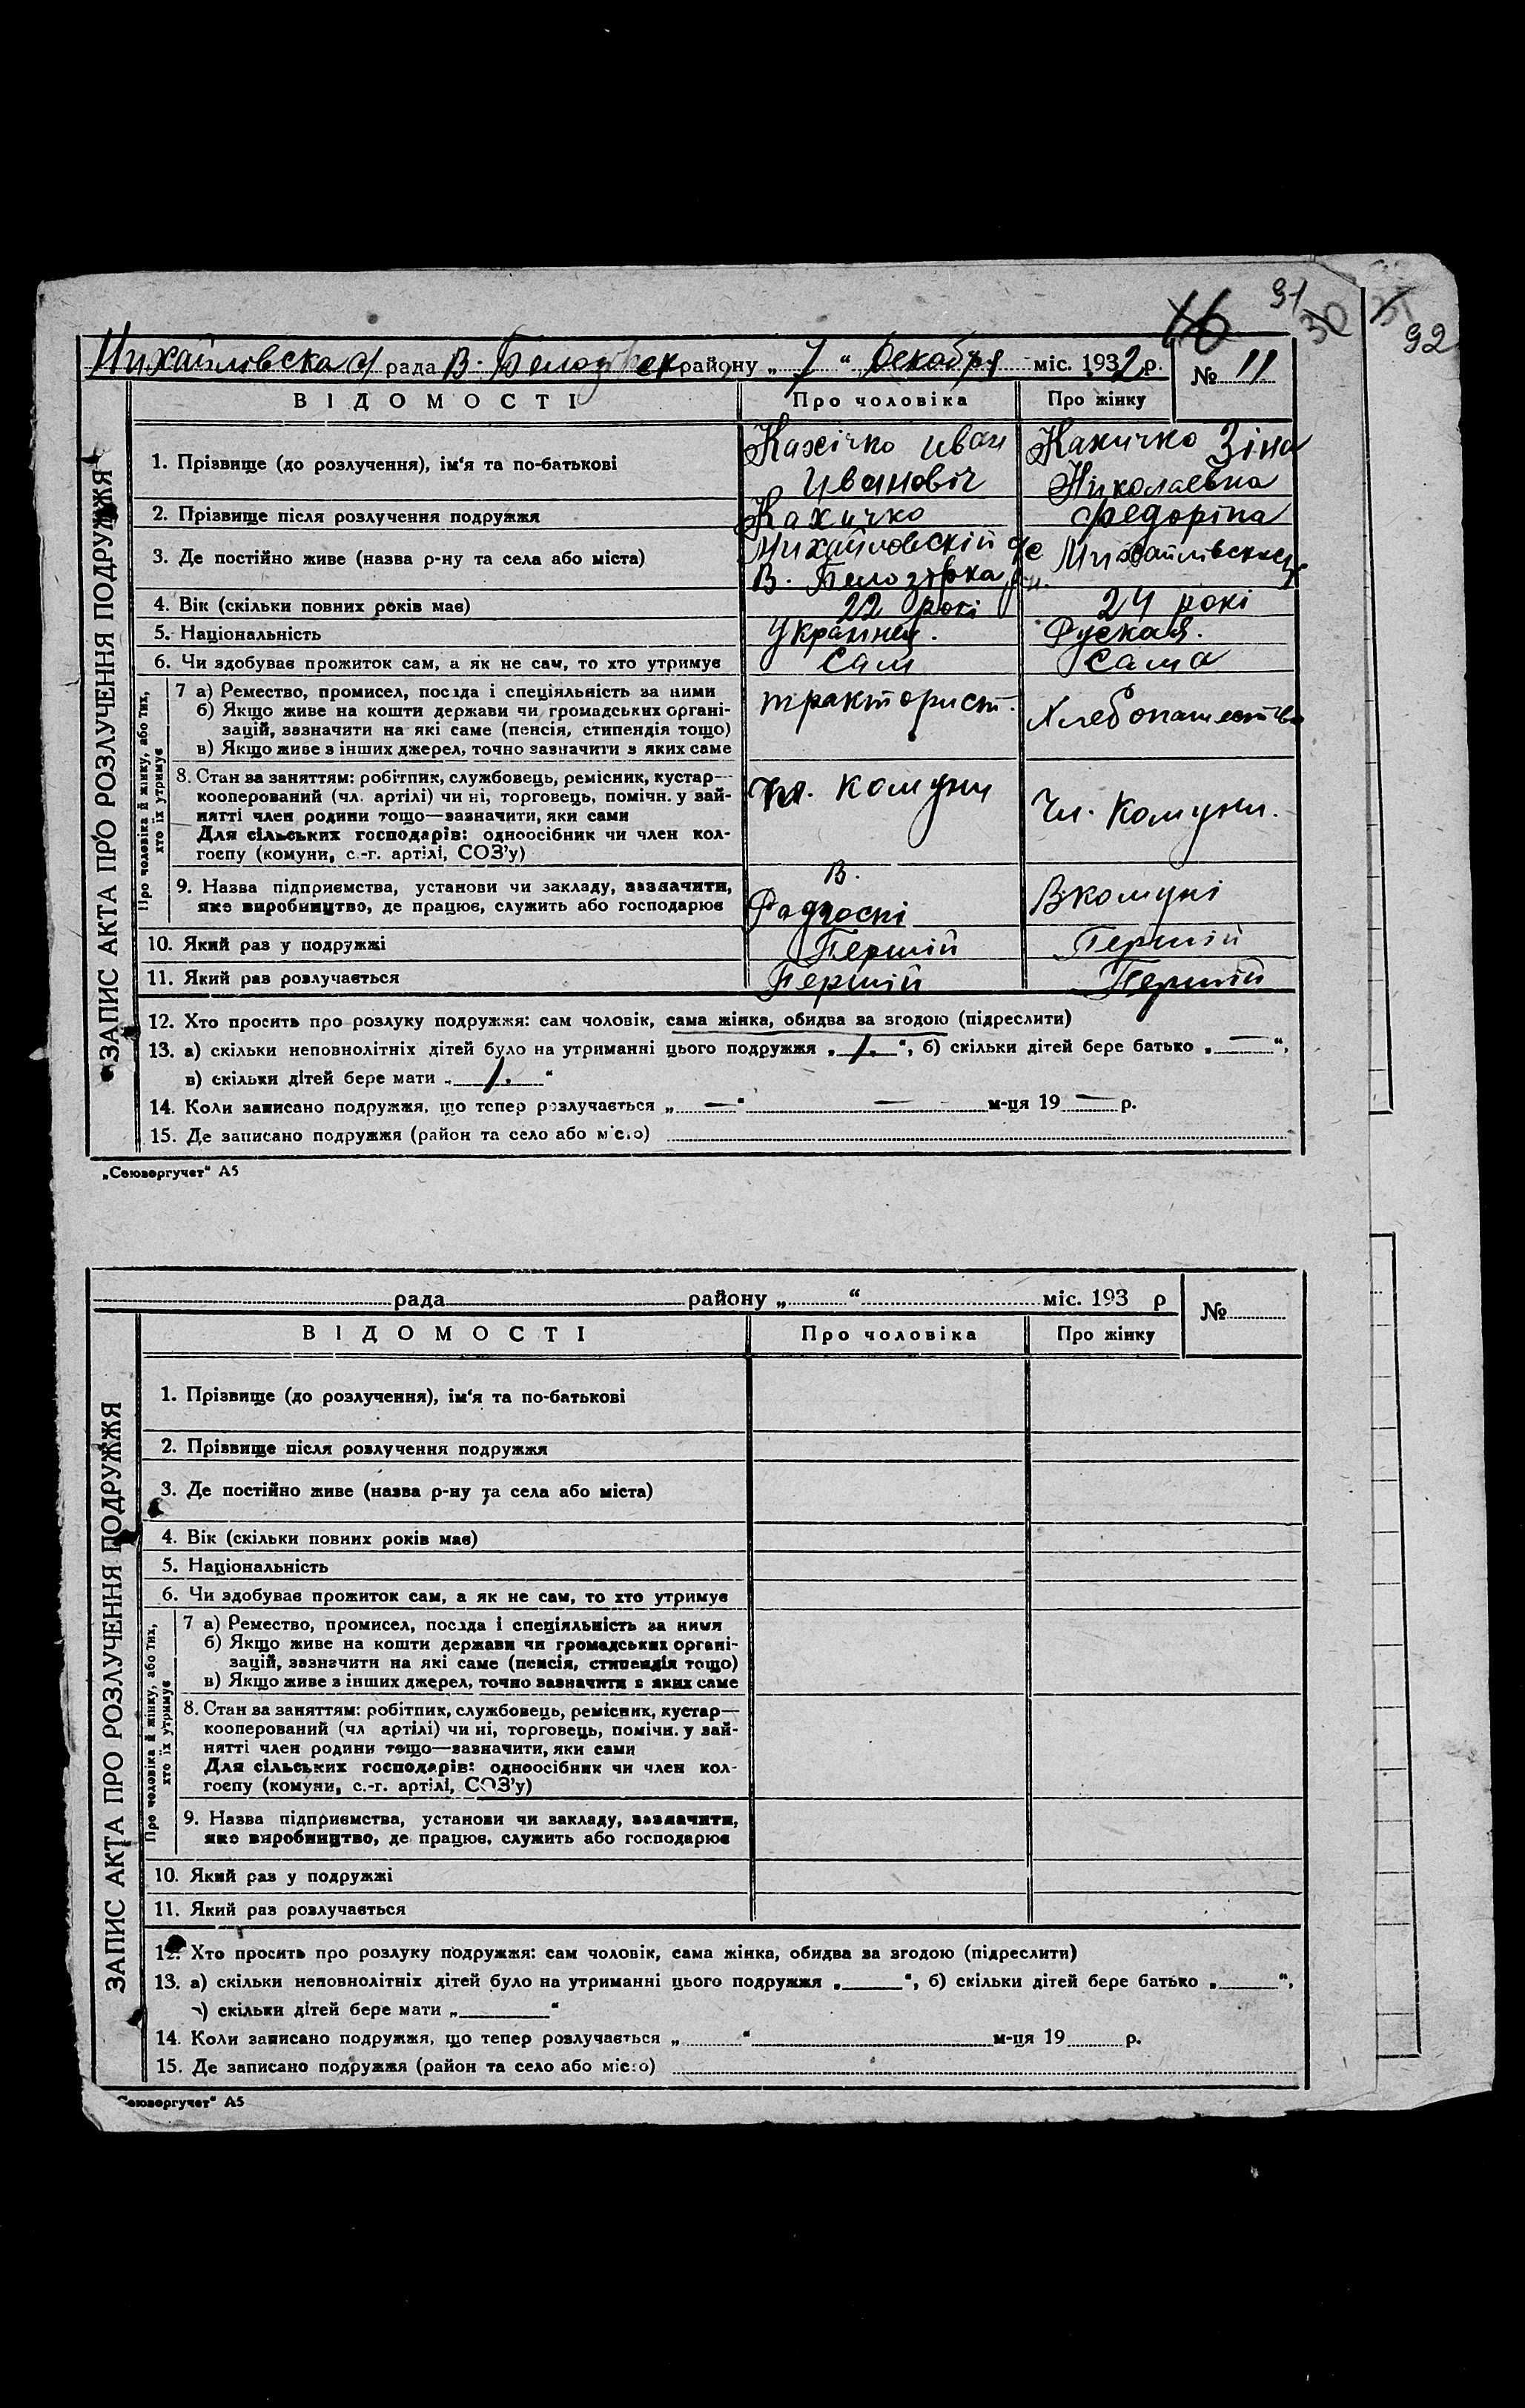 16 91 30 31
92
Михайлівская рада В. Белозірск району „ 7 “ Декабря міс. 1932 р. № 11
ВІДОМОСТІ Про чоловіка Про жінку
ЗАПИС АКТА ПРО РОЗЛУЧЕННЯ ПОДРУЖЖЯ
1. Прізвище (до розлучення), ім'я та по-батькові Кахічко Иван Ивановіч Кахичко Зіна Николаевна
2. Прізвище після розлучення подружжя Кахичко Федоріна
3. Де постійно живе (назва р-ну та села або міста) Михайловскій В. Белозірка Михайлівская
4. Вік (скільки повних років має) 22 рокі 24 рокі
5. Національність Украінец. Руская.
6. Чи здобуває прожиток сам, а як не сам, то хто утримує Сам Сама
Про чоловіка й жінку, або тих,
хто їх утримує
7 а) Ремество, промисел, посада і спеціяльність за ними тракторист. Хлебопашество
б) Якщо живе на кошти держави чи громадських органі-
зацій, зазначити на які саме (пенсія, стипендія тощо)
в) Якщо живе з інших джерел, точно зазначити з яких саме
8. Стан за заняттям: робітник, службовець, ремісник, кустар— чл. комуни Чл. Комуни.
кооперований (чл. артілі) чи ні, торговець, помічн. у зай-
нятті член родини тощо—зазначити, яки сами
Для сільських господарів: одноосібник чи член кол-
госпу (комуни, с.-г. артілі, СОЗ'у)
9. Назва підприємства, установи чи закладу, зазначити, В. Радгоспі В комуні
яке виробництво, де працює, служить або господарює
10. Який раз у подружжі Першій Першій
11. Який раз розлучається Першій Першій
12. Хто просить про розлуку подружжя: сам чоловік, сама жінка, обидва за згодою (підреслити)
13. а) скільки неповнолітніх дітей було на утриманні цього подружжя „ 1. “, б) скільки дітей бере батько „ — “,
в) скільки дітей бере мати „ 1. “
14. Коли записано подружжя, що тепер розлучається „ — “ — м-ця 19 — р.
15. Де записано подружжя (район та село або місто)
„Союзоргучет“ А5
рада району „ “ міс. 193 р №
ВІДОМОСТІ Про чоловіка Про жінку
ЗАПИС АКТА ПРО РОЗЛУЧЕННЯ ПОДРУЖЖЯ
1. Прізвище (до розлучення), ім'я та по-батькові
2. Прізвище після розлучення подружжя
3. Де постійно живе (назва р-ну та села або міста)
4. Вік (скільки повних років має)
5. Національність
6. Чи здобуває прожиток сам, а як не сам, то хто утримує
Про чоловіка й жінку, або тих,
хто їх утримує
7 а) Ремество, промисел, посада і спеціяльність за ними
б) Якщо живе на кошти держави чи громадських органі-
зацій, зазначити на які саме (пенсія, стипендія тощо)
в) Якщо живе з інших джерел, точно зазначити з яких саме
8. Стан за заняттям: робітник, службовець, ремісник, кустар—
кооперований (чл артілі) чи ні, торговець, помічн. у зай-
нятті член родини тощо—зазначити, яки сами
Для сільських господарів: одноосібник чи член кол-
госпу (комуни, с.-г. артілі, СОЗ'у)
9. Назва підприємства, установи чи закладу, зазначити,
яке виробництво, де працює, служить або господарює
10. Який раз у подружжі
11. Який раз розлучається
12. Хто просить про розлуку подружжя: сам чоловік, сама жінка, обидва за згодою (підреслити)
13. а) скільки неповнолітніх дітей було на утриманні цього подружжя „ “, б) скільки дітей бере батько „ “,
в) скільки дітей бере мати „ “
14. Коли записано подружжя, що тепер розлучається „ “ м-ця 19 р.
15. Де записано подружжя (район та село або місто)
„Союзоргучет“ А5